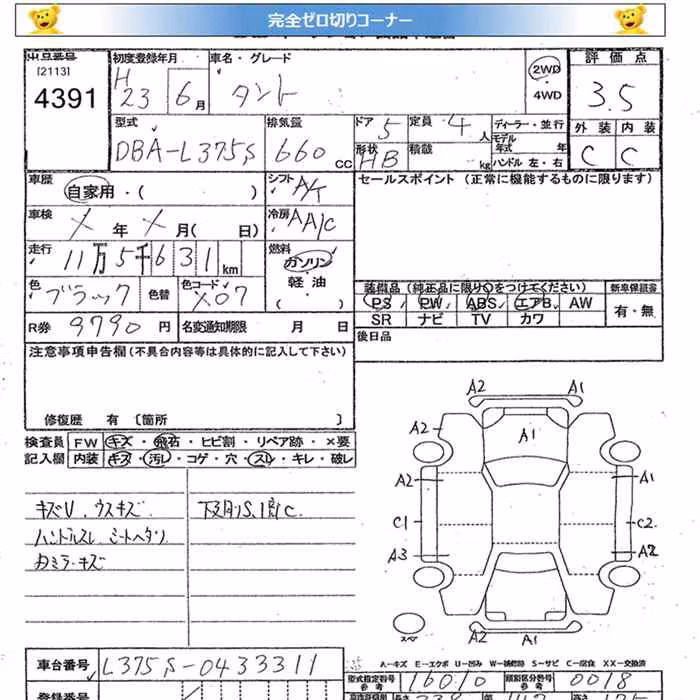 完全ゼロ切りコーナー
出品番号 初度登録年月 車名・グレード 評価点
[2113] H 2WD
4391 23 6月 タント 4WD 3.5
型式 排気量 ドア 定員 ディーラー・並行 外装 内装
DBA-L375S 660cc 5 4人 モデル年式 年
形状 HB 積載 kg ハンドル 左・右 C C
車歴 自家用・( ) シフト A/T セールスポイント (正常に機能するものに限ります)
車検 X年X月( 日) 冷房 AA/C
走行 11万5千631km 燃料 ガソリン・軽油
色 ブラック 色替 色コード X07 装備品 (純正品に限り○をつけてください) 新車保証書
PS PW ABS エアB AW 有・無
R券 9790円 名変通知期限 月 日 SR ナビ TV カワ
注意事項申告欄(不具合内容等は具体的に記入して下さい) 後日品
修復歴 有 [箇所 ]
検査員 FW キズ・飛石・ヒビ割・リペア跡・×要
記入欄 内装 キズ・汚レ・コゲ・穴・スレ・キレ・破レ
キズU、ウスキズ
ハンドルスレ シートヘタリ
A2 A1
A2 A1
A2 A1
C1 C2
A3 A2
スペ
A2 A1
A-キズ E-エクボ U-凹み W-補修跡 S-サビ C-腐食 XX-交換済
車台番号 L375S-0433311 型式指定番号 参考 16010 類別区分番号 参考 0018
登録番号